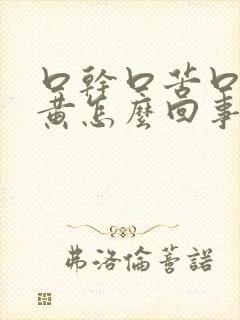 口幹口苦口
黃怎麼回事
弗洛倫蒼諾